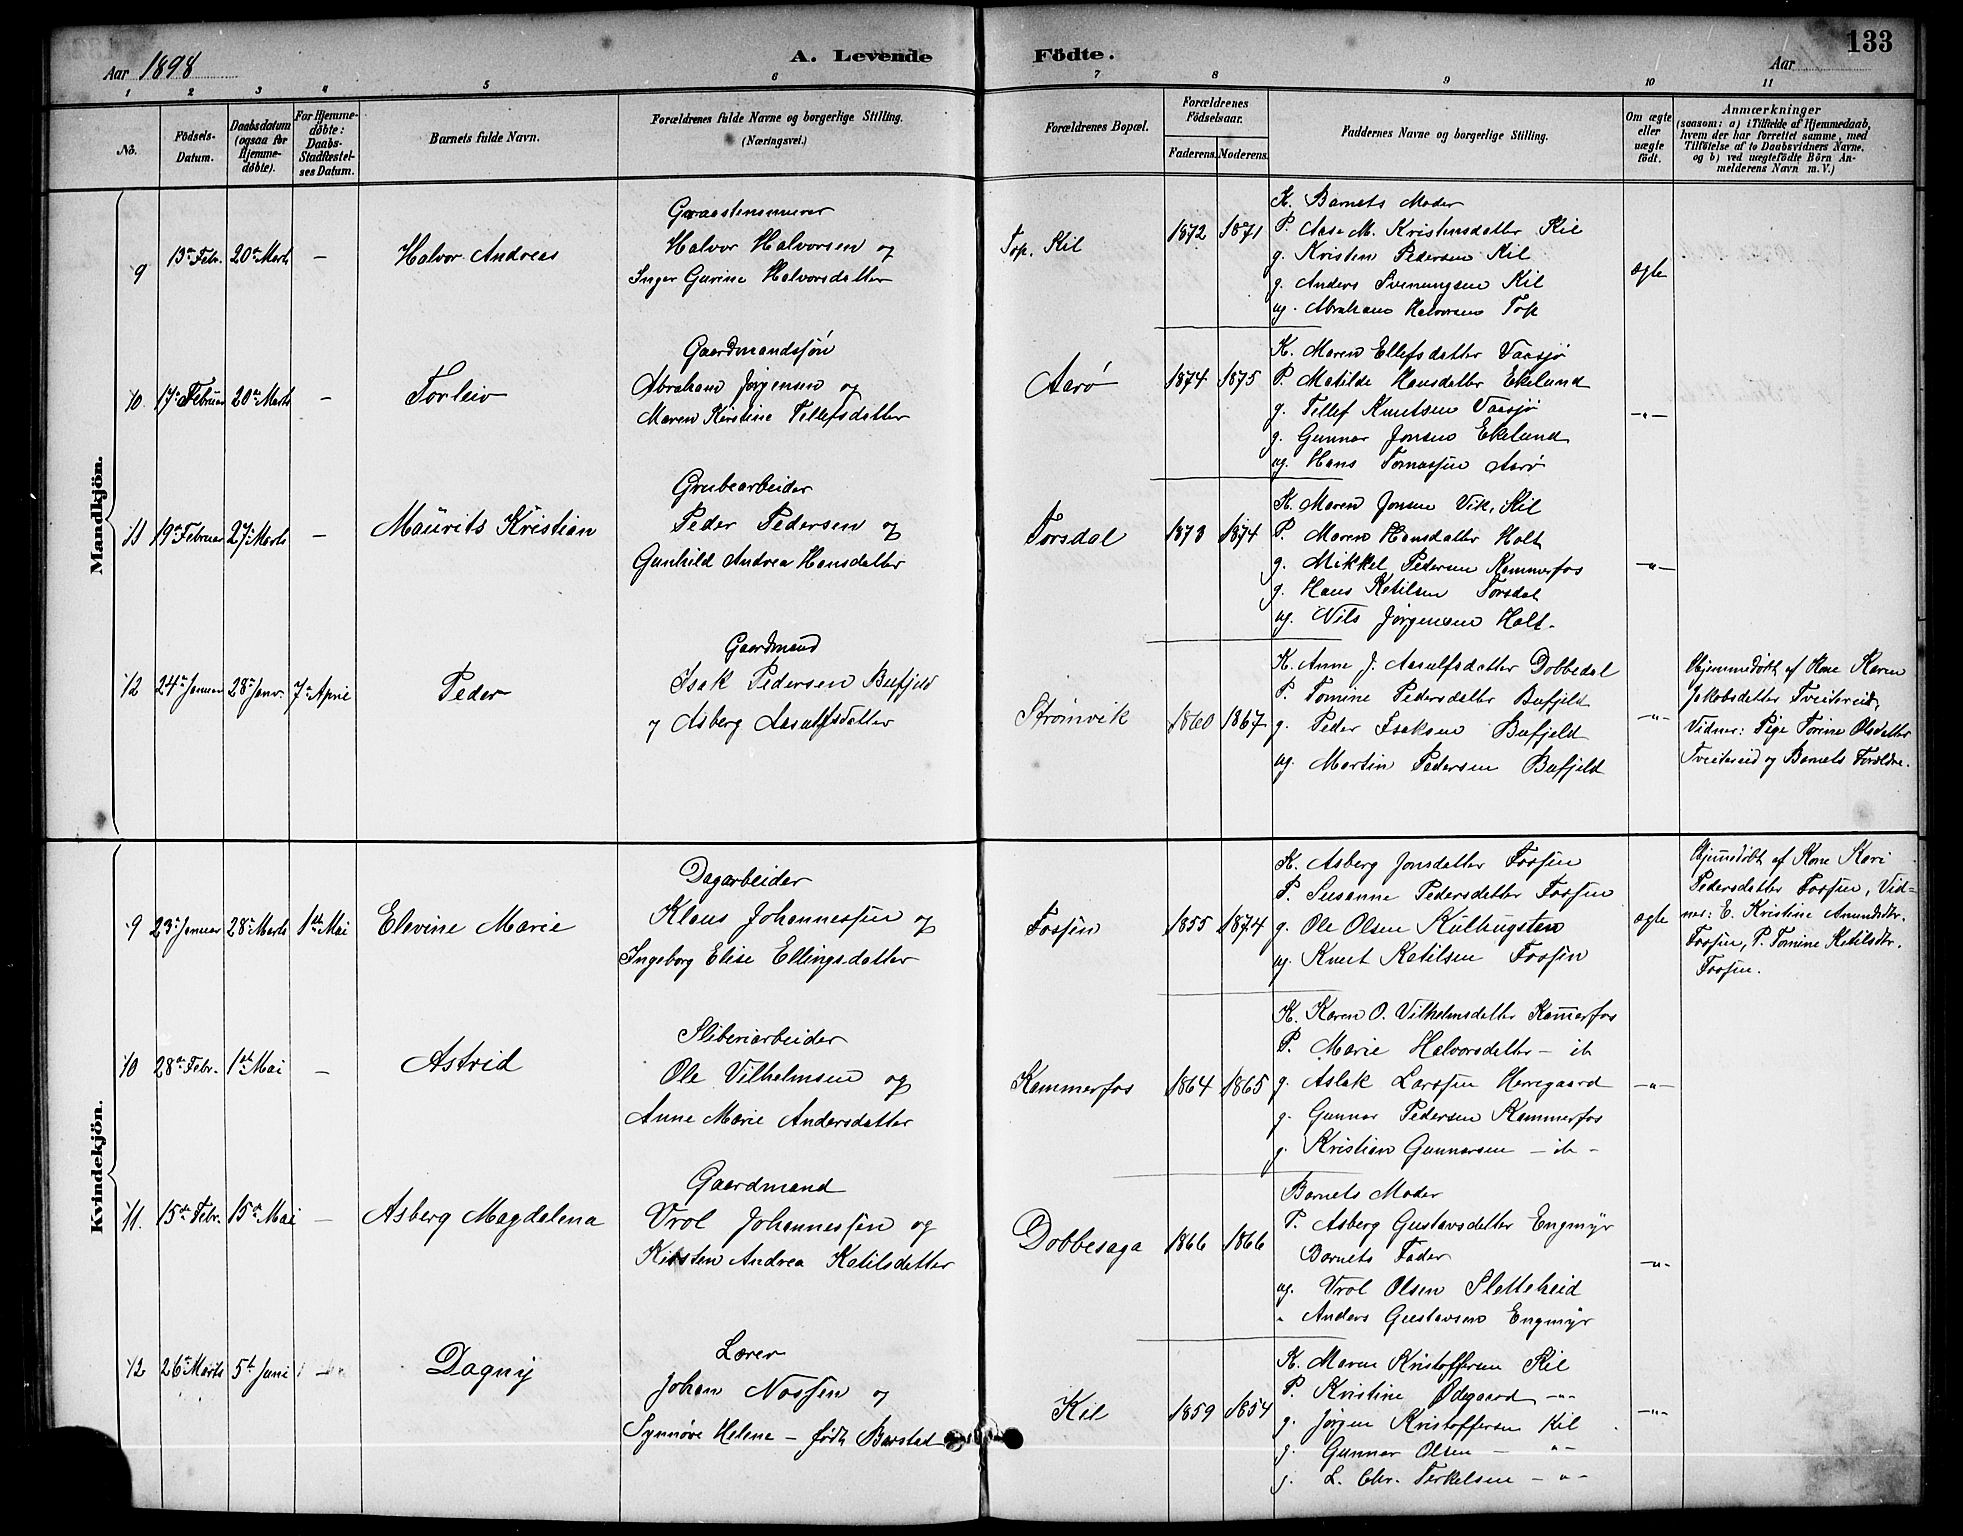 Aar 1898
A. Levende Födte.
133
Aar
1 2 3 4 5 6 7 8 9 10 11
No.
Födsels-Datum.
Daabsdatum (ogsaa for Hjemme-døbte).
For Hjemme-døbte: Daabs-Stadfæstel-ses Datum.
Barnets fulde Navn.
Forældrenes fulde Navne og borgerlige Stilling.
(Næringsvei.)
Forældrenes Bopæl.
Forældrenes Födselsaar.
Faderens. Moderens.
Faddernes Navne og borgerlige Stilling.
Om ægte eller uægte födt.
Anmærkninger
(saasom: a) i Tilfælde af Hjemmedaab,
hvem der har forrettet samme, med
Tilföielse af to Daabsvidners Navne,
og b) ved uægtefödte Börn An-
melderens Navn m. V.)
Mandkjön.
9 13de Febr. 20de Marts — Halvor Andreas
Graastensmurer
Halvor Halvorsen og
Inger Gurine Halvorsdatter
Top. Kil 1872 1871
K. Barnets Moder
P. Aase M. Kristensdatter Kil
g. Kristen Pedersen Kil
g. Anders Svenungsen Kil
ug. Abraham Halvorsen Top
ægte
10. 17de Februar 20de Marts — Torleiv
Gaardmandssøn
Abraham Jørgensen og
Maren Kirstine Tellefsdatter
Aarø 1874 1875
K. Maren Ellefsdatter Vaasjø
P. Matilde Hansdatter Ekelund
g. Tellef Knutsen Vaasjø
g. Gunnar Jonsen Ekelund
ug. Hans Tomassen Aarø
—"—
11 19de Februar 27de Marts — Maurits Kristian
Grubearbeider
Peder Pedersen og
Gunhild Andrea Hansdatter
Torsdal 1873 1874
K. Maren Jonsen Vik, Kil
P. Maren Hansdatter Holt
g. Mikkel Pedersen Kammerfos
g. Hans Ketilsen Torsdal
ug. Nils Jørgensen Holt.
—"—
12 24de Januar 28de Janr. 7de April Peder
Gaardmand
Isak Pedersen Bufjeld
og Asberg Aasulfsdatter
Strømvik 1860 1867
K. Anne J. Aasulfsdatter Dobbedal
P. Tomine Pedersdatter Bufjeld
g. Peder Isaksen Bufjeld
ug. Martin Pedersen Bufjeld
—"—
Hjemmedøbt af Kone Karen
Jakobsdatter Tveitereid,
Vidner: Pige Torine Olsdatter
Tveitereid og Barnets Forældre.
Kvindekjön.
9 23de Januar 28de Marts 1ste Mai Elevine Marie
Dagarbeider
Klaus Johannessen og
Ingeborg Elise Ellingsdatter
Fossen 1855 1874
K. Asberg Jonsdatter Fossen
P. Susanne Pedersdatter Fossen
g. Ole Olsen Kulhugsten
ug. Knut Ketilsen Fossen
ægte
Hjemmedøbt af Kone Kari
Pedersdatter Fossen, Vid=
ner: E. Kristine Amundsdtr.
Fossen, P. Tomine Ketilsdtr.
Fossen.
10 28de Febr. 1ste Mai — Astrid
Sliberiarbeider
Ole Vilhelmsen og
Anne Marie Andersdatter
Kammerfos 1864 1865
K. Karen O. Vilhelmsdatter Kammerfos
P. Marie Halvorsdatter — ib
g. Aslak Larssen Herregaard
g. Gunnar Pedersen Kammerfos
g. Kristian Gunnarsen — ib —
—"—
11. 15de Febr. 15de Mai — Asberg Magdalena
Gaardmand
Vrol Johannessen og
Kirsten Andrea Ketilsdatter
Dobbesaga 1866 1866
Barnets Moder
P. Asberg Gustavsdatter Engmyr
Barnets Fader
ug. Vrol Olsen Sletteheid
" Anders Gustavsen Engmyr
—"—
12 26de Marts 5te Juni — Dagny
Lærer
Johan Nossen og
Synnøve Helene — født Barstad
Kil 1859 1854
K. Maren Kristoffersen Kil
P. Kristine Ødegaard —"—
g. Jørgen Kristoffersen Kil
g. Gunnar Olsen — "—
g. L. Chr. Terkelsen — " —
—"—